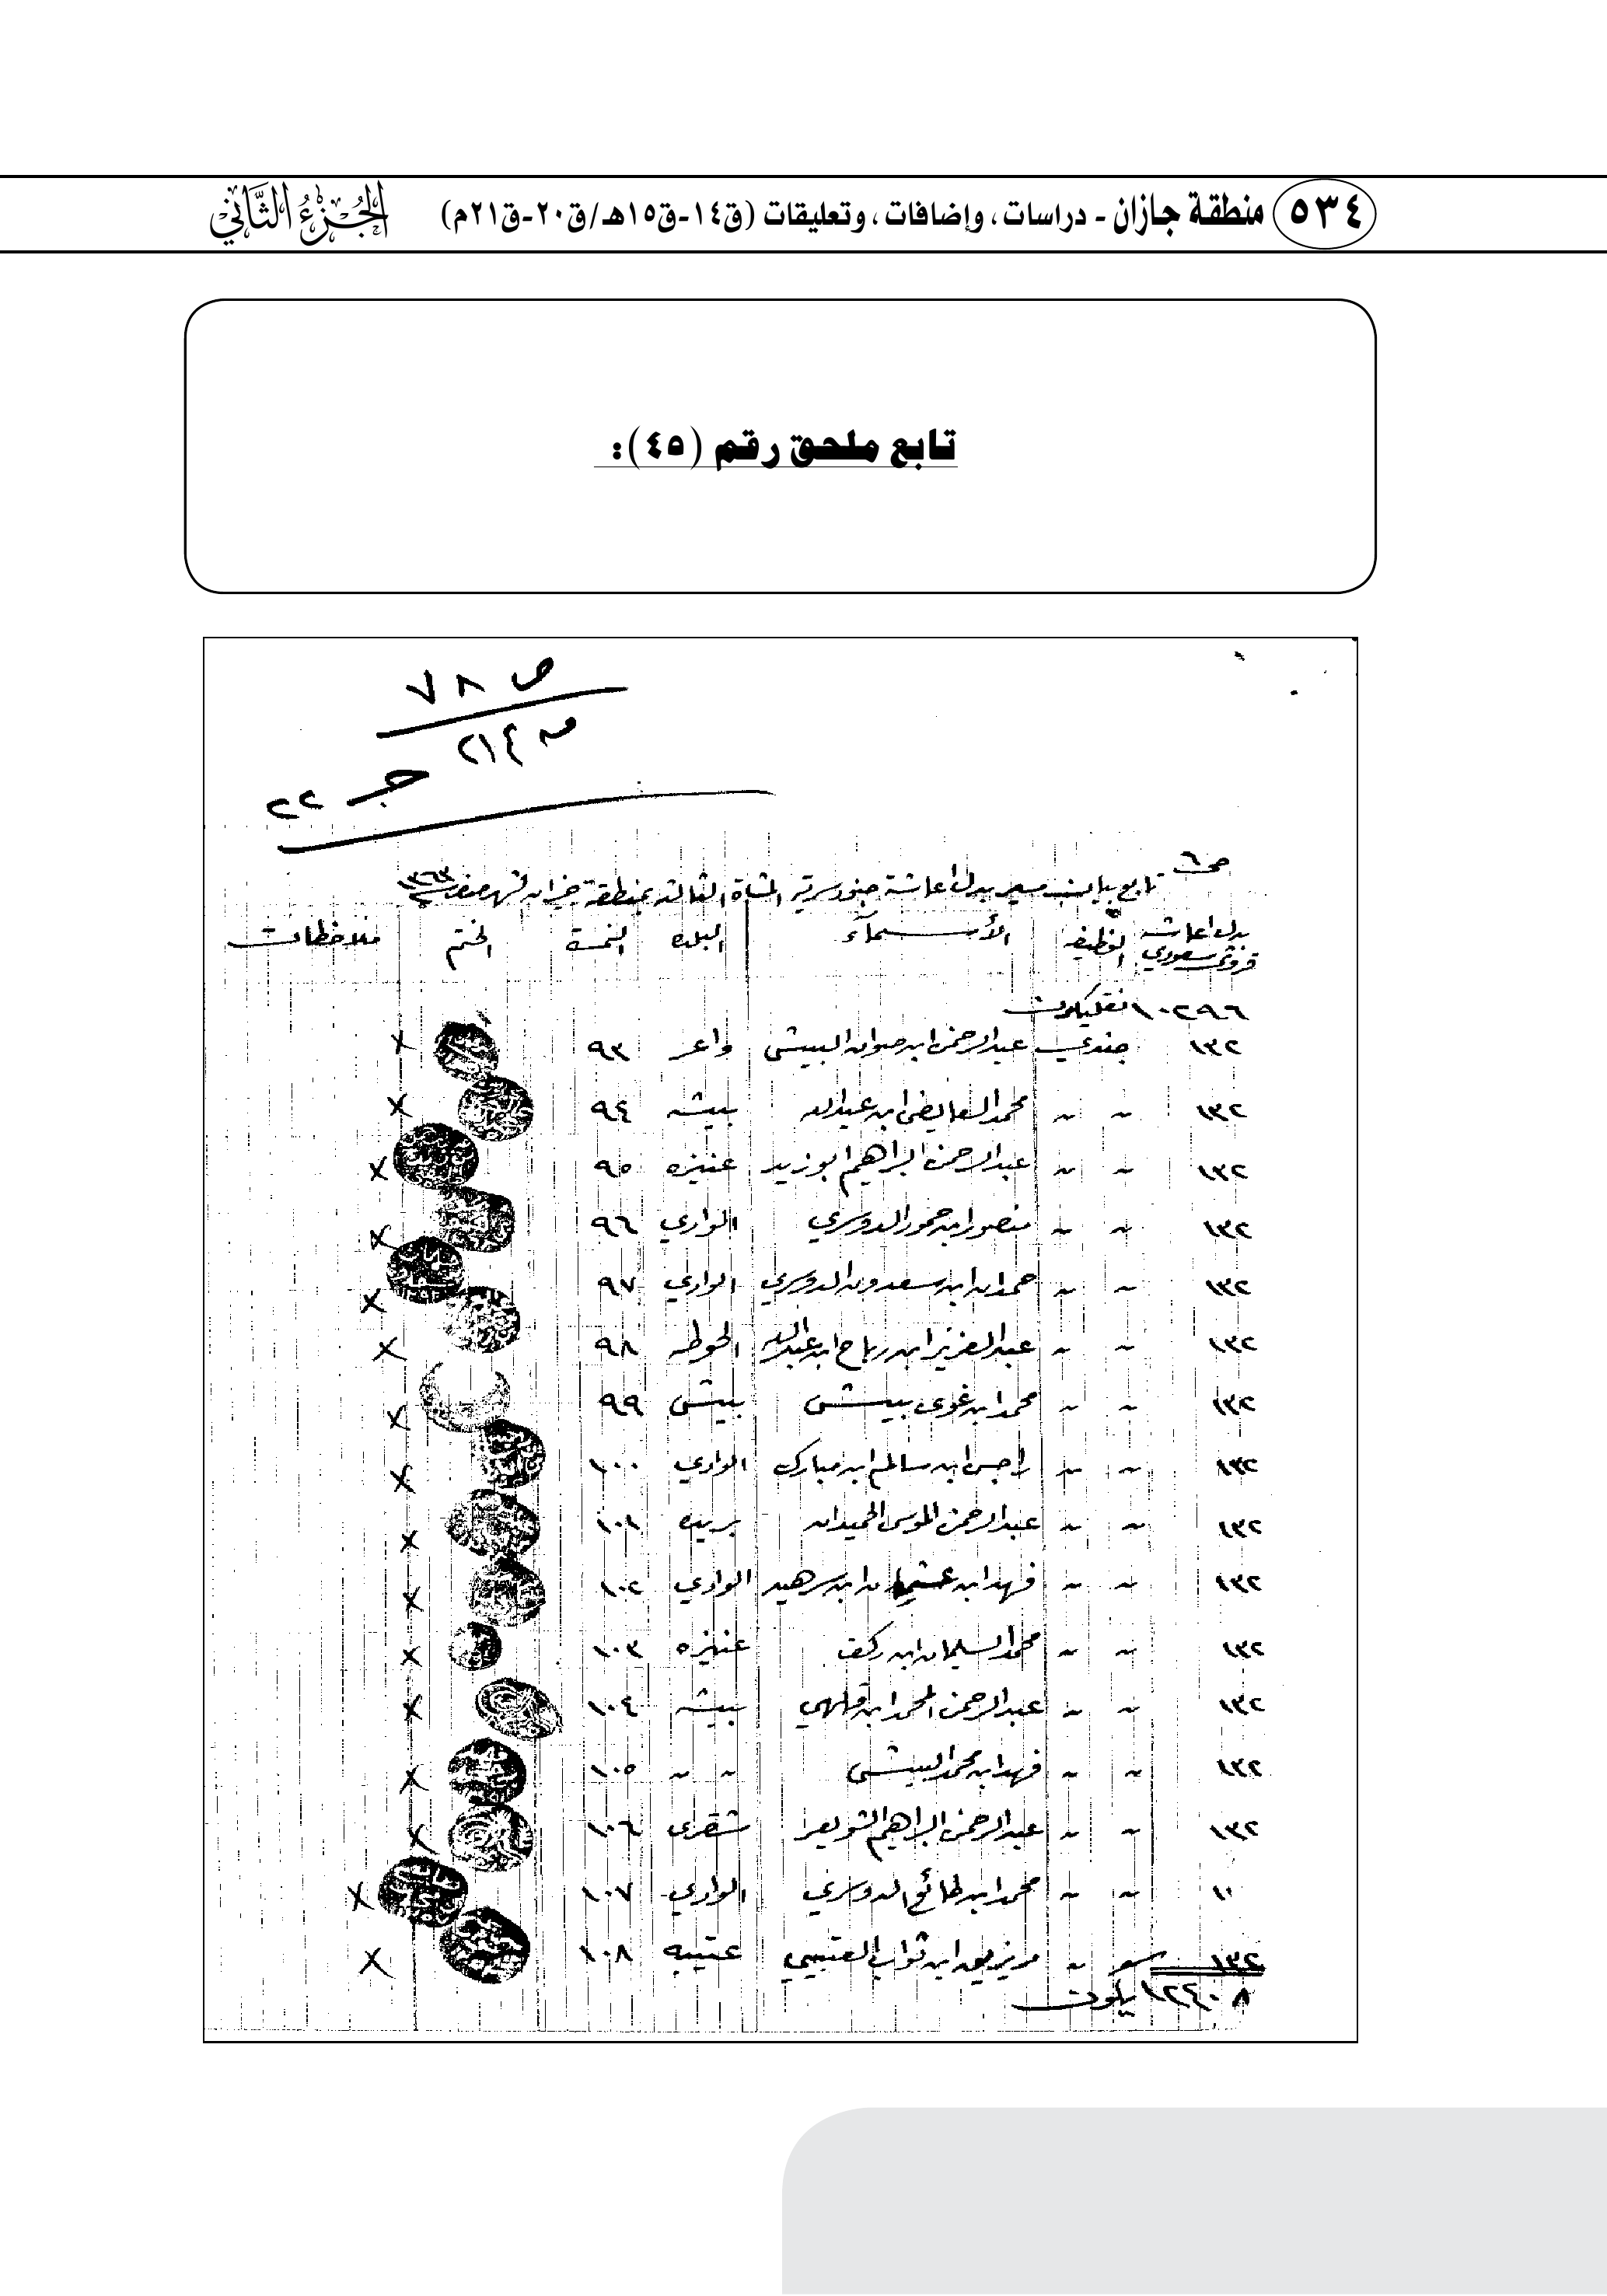 ٥٣٤ منطقة جازان - دراسات، وإضافات، وتعليقات (ق١٤-ق١٥هـ/ق٢٠-ق٢١م) الجزء الثاني
تابع ملحق رقم (٤٥):
ص ٧٨
٢١٤
جـ ٢٢
ص ٦
تابع بيان بدل اعاشة جنود سرية المشاة الثالثة بمنطقة جيزان لشهر صفر ١٣٦٣
بدل اعاشه قروش سعودي الوظيفه الأسماء البلده النمرة الختم ملاحظات
١٠٢٩٦
١٣٢ جندي عبدالرحمن ابن البيشي ٩٣ x
١٣٢ ~ ~ محمد العايضي ابن عبدالله بيشه ٩٤ x
١٣٢ ~ ~ عبدالرحمن البراهيم ابوزيد عنيزه ٩٥ x
١٣٢ ~ ~ منصور ابن حمود الدوسري الوادي ٩٦ x
١٣٢ ~ ~ حمدان ابن سعدون الدوسري الوادي ٩٧ x
١٣٢ ~ ~ عبدالعزيز ابن رباح ابن عبدالله الحوطه ٩٨ x
١٣٢ ~ ~ محمد ابن بيشي ٩٩ x
١٣٢ ~ ~ ابن سالم ابن مبارك الوادي ١٠٠ x
١٣٢ ~ ~ عبدالرحمن الموسى الحميدان بريده ١٠١ x
١٣٢ ~ ~ فهد ابن ابن سرهيد الوادي ١٠٢ x
١٣٢ ~ ~ محمد السليمان ابن عنيزه ١٠٣ x
١٣٢ ~ ~ عبدالرحمن المحمد ابن بيشه ١٠٤ x
١٣٢ ~ ~ فهد ابن محمد البيشي ~ ~ ١٠٥ x
١٣٢ ~ ~ عبدالرحمن البراهيم الشويعر شقرى ١٠٦ x
~ ~ محمد ابن الدوسري الوادي ١٠٧ x
١٣٢ ~ مريزيق ابن ثواب العتيبي عتيبه ١٠٨ x
١٢٤٠٨